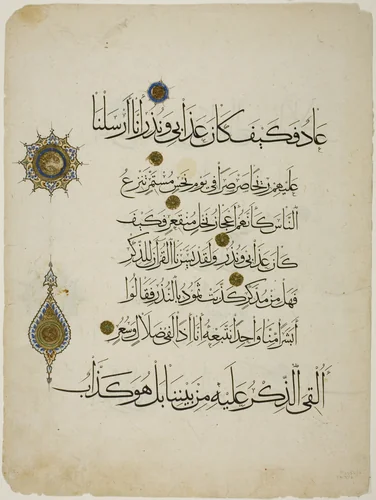 عاد فكيف كان عذابي ونذر انا أرسلنا
عليهم ريحا صرصرا في يوم نحس مستمر تنزع
الناس كأنهم أعجاز نخل منقعر فكيف
كان عذابي ونذر ولقد يسرنا القرآن للذكر
فهل من مدكر كذبت ثمود بالنذر فقالوا
أبشرا منا واحدا نتبعه إنا إذا لفي ضلال وسعر
أألقي الذكر عليه من بيننا بل هو كذاب